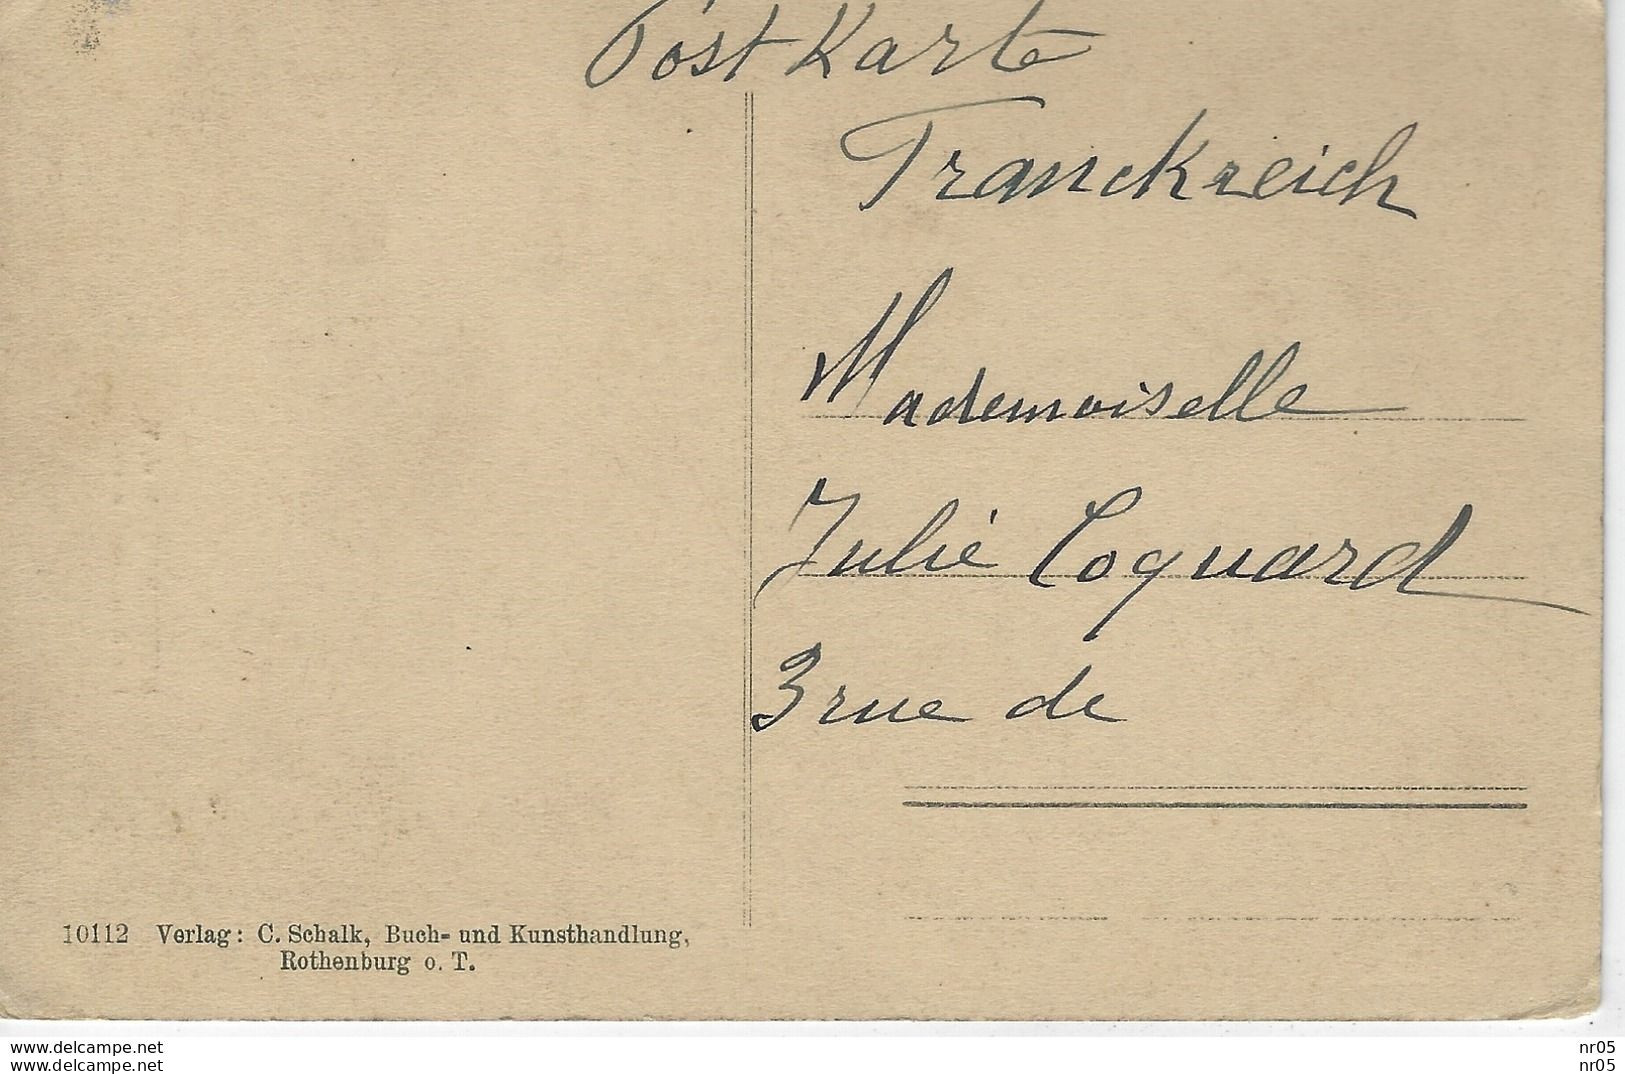 Post Karte
Franckreich
Mademoiselle
Julie Coquard
3 rue de
10112 Verlag: C. Schalk, Buch- und Kunsthandlung,
Rothenburg o. T.
www.delcampe.net
www.delcampe.net
nr05
nr05